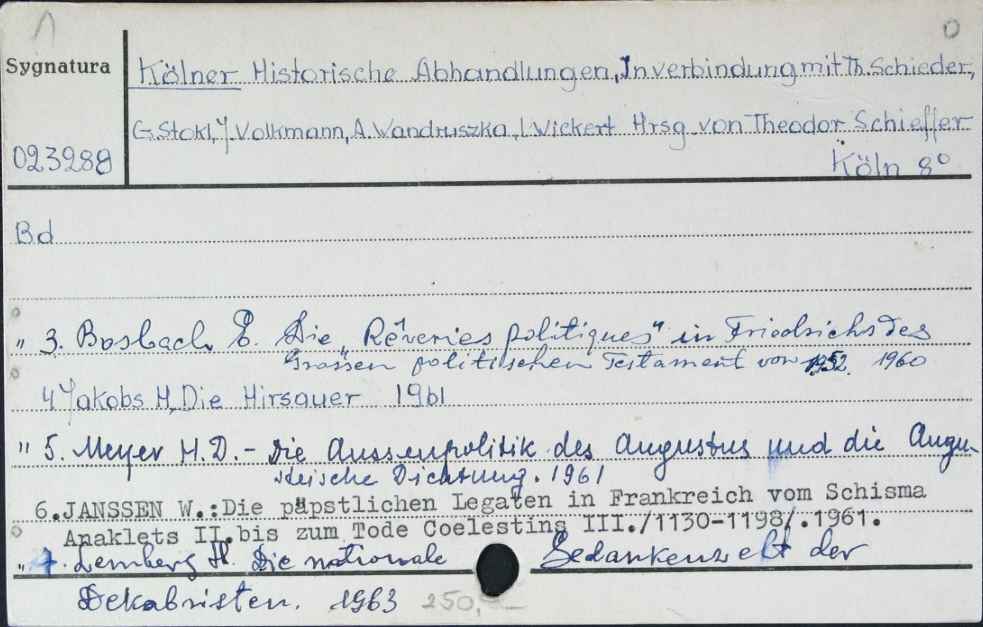 Sygnatura
Kölner Historische Abhandlungen, In verbindung mit Th. Schieder,
G. Stokl, J. Volkmann, A. Wandruszka, L. Wickert Hrsg. von Theodor Schieffer
023288
Köln 8°
Bd
" 3. Bosbach E. Die „Rêveries politiques" in Friedrichs des
Grossen politischen Testament von 1952. 1960
4 Jakobs H, Die Hirsauer 1961
" 5. Meyer H.D. - Die Aussenpolitik des Augustus und die Augu-
steische Dichtung. 1961
6. JANSSEN W.: Die päpstlichen Legaten in Frankreich vom Schisma
Anaklets II. bis zum Tode Coelestins III./1130-1198/. 1961.
„ 7. Lemberg H. Die nationale Gedankenwelt der
Dekabristen. 1963 250,-